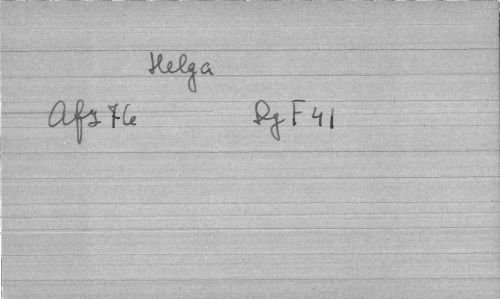 Helga
Afs 76 Dg F 41